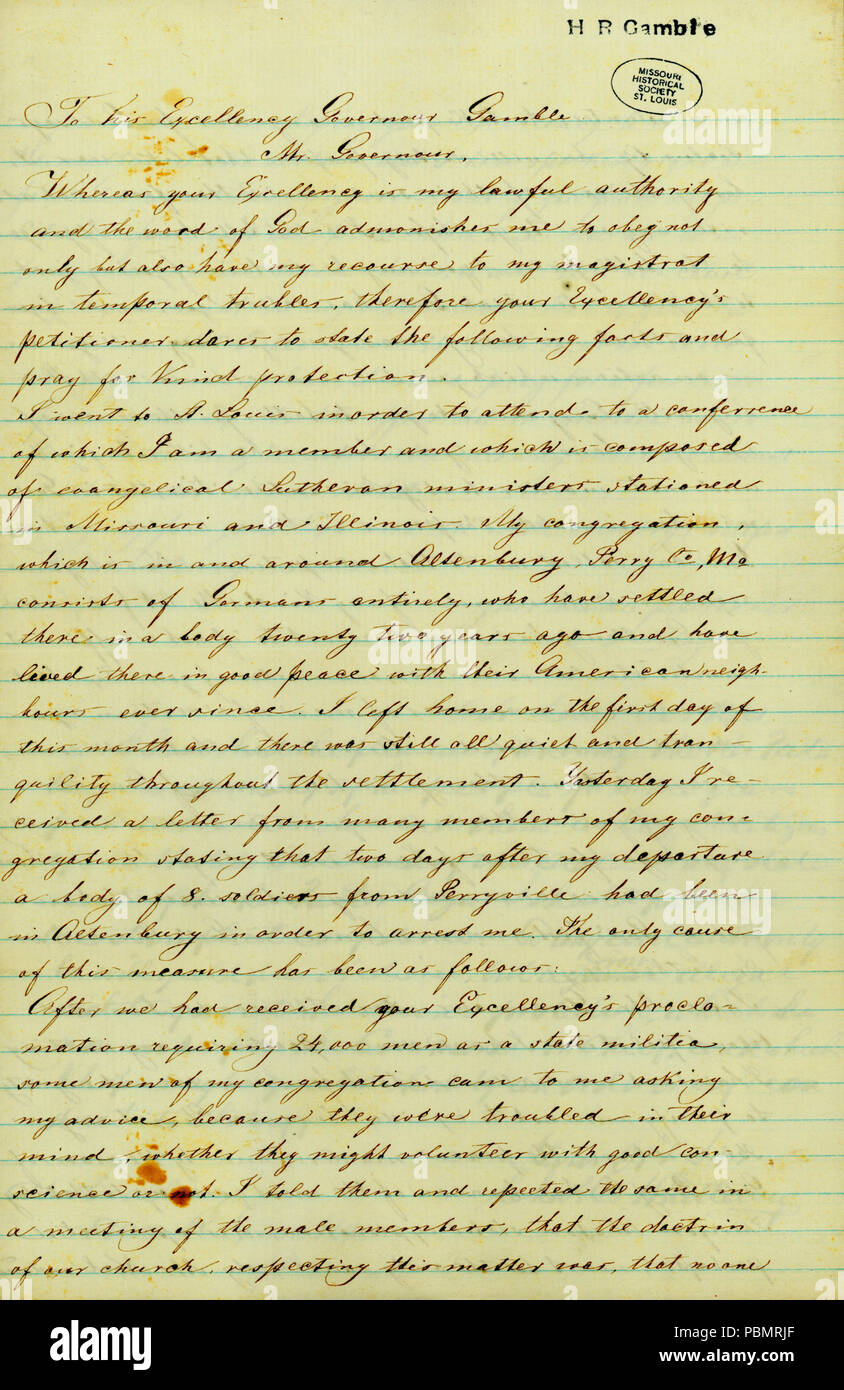 H R Gamble
MISSOURI
HISTORICAL
SOCIETY
ST. LOUIS
To his Excellency Governour Gamble
Mr. Governour,
Whereas your Excellency is my lawful authority
and the word of God admonishes me to obey not
only but also have my recourse to my magistrat
in temporal trubles, therefore your Excellency's
petitioner dares to state the following facts and
pray for kind protection.
I went to St. Louis in order to attend to a conferrence
of which I am a member and which is composed
of evangelical Lutheran ministers stationed
in Missouri and Illinois. My congregation,
which is in and around Altenburg, Perry Co, Mo
consists of Germans entirely, who have settled
there in a body twenty two years ago and have
lived there in good peace with their American neigh-
bours ever since. I left home on the first day of
this month and there was still all quiet and tran-
quility throughout the settlement. Yesterday I re-
ceived a letter from many members of my con-
gregation stating that two days after my departure
a body of 8. soldiers from Perryville had been
in Altenburg in order to arrest me. The only cause
of this measure has been as follows:
After we had received your Excellency's procla-
mation requiring 24,000 men as a state militia,
some men of my congregation cam to me asking
my advice, because they were troubled in their
mind, whether they might volunteer with good con-
science or not. I told them and repeeted the same in
a meeting of the male members, that the doctrin
of our church, respecting this matter was, that no one
alamy
alamy
Image ID: PBMRJF
www.alamy.com